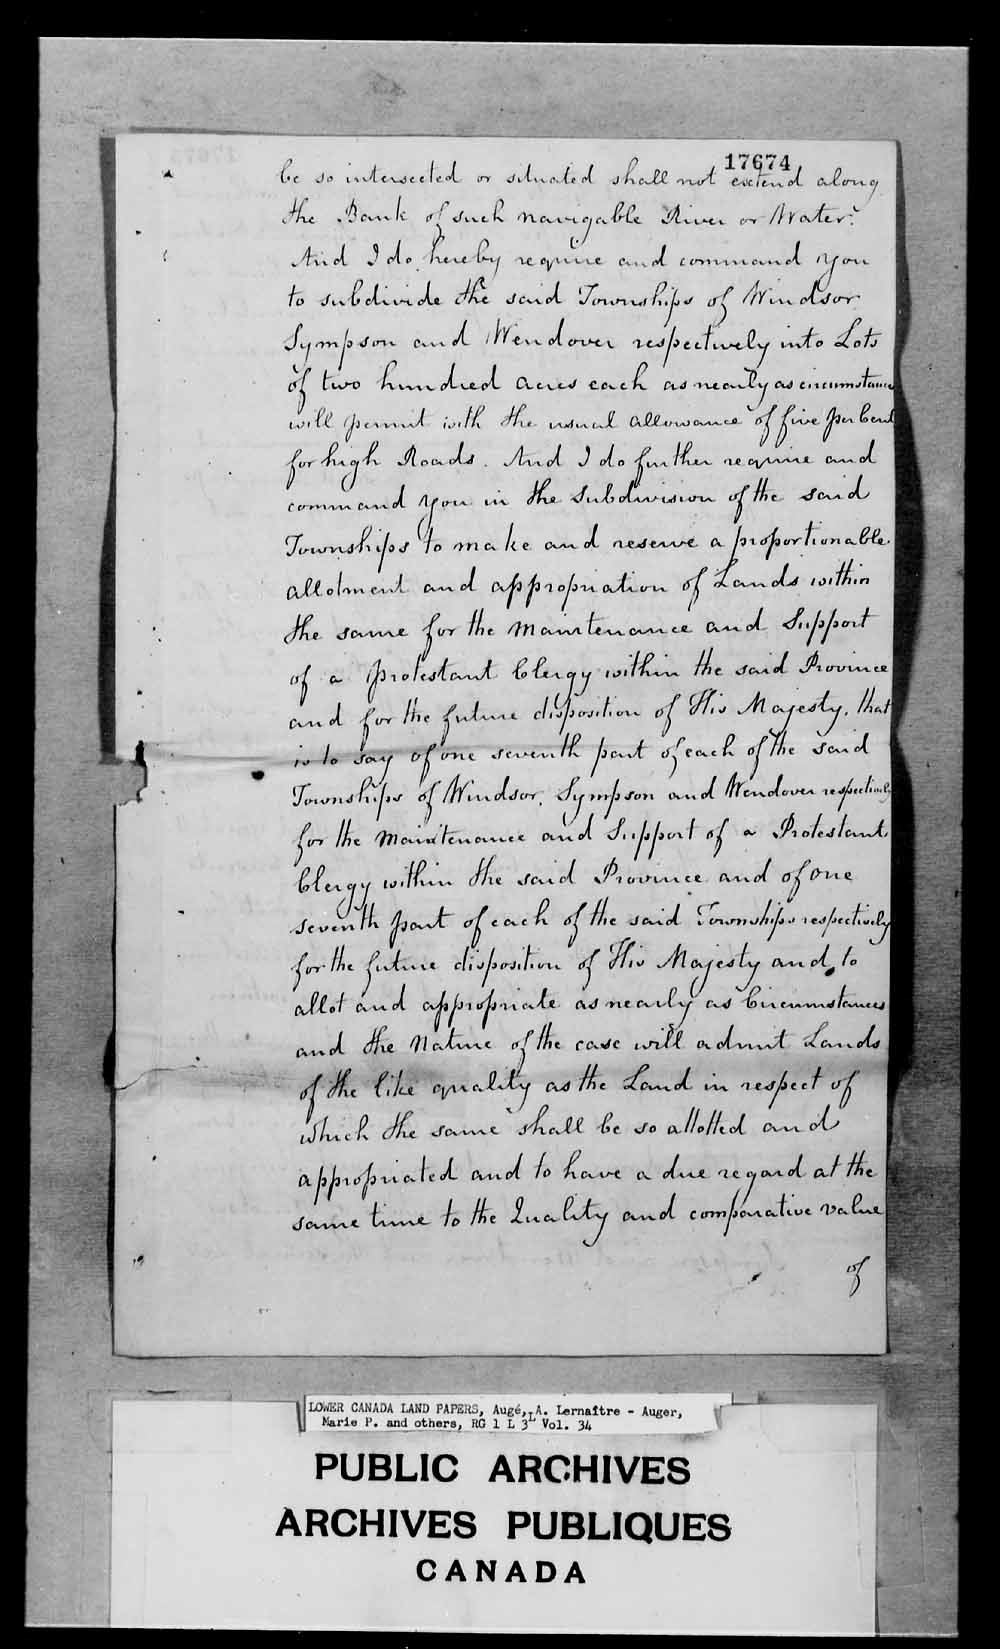 17674
be so intersected or situated shall not extend along
the Bank of such navigable River or Water.
And I do hereby require and command you
to subdivide the said Townships of Windsor
Sympson and Wendover respectively into Lots
of two hundred acres each as nearly as circumstances
will permit with the usual allowance of five per Cent
for high Roads. And I do further require and
command you in the Subdivision of the said
Townships to make and reserve a proportionable
allotment and appropriation of Lands within
the same for the Maintenance and Support
of a Protestant Clergy within the said Province
and for the future disposition of His Majesty, that
is to say of one seventh part of each of the said
Townships of Windsor, Sympson and Wendover respectively
for the Maintenance and Support of a Protestant
Clergy within the said Province and of one
seventh part of each of the said Townships respectively
for the future disposition of His Majesty and to
allot and appropriate as nearly as Circumstances
and the Nature of the case will admit Lands
of the like quality as the Land in respect of
which the same shall be so allotted and
appropriated and to have a due regard at the
same time to the Quality and comparative value
of
LOWER CANADA LAND PAPERS, Augé, A. Lernaître - Auger,
Marie P. and others, RG 1 L 3L Vol. 34
PUBLIC ARCHIVES
ARCHIVES PUBLIQUES
CANADA